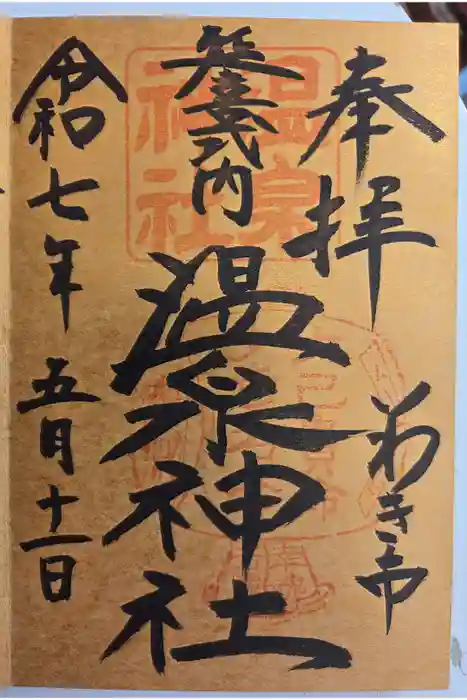 奉拝
いわき市
延喜式内
温泉神社
令和七年
五月十一日
温泉神社